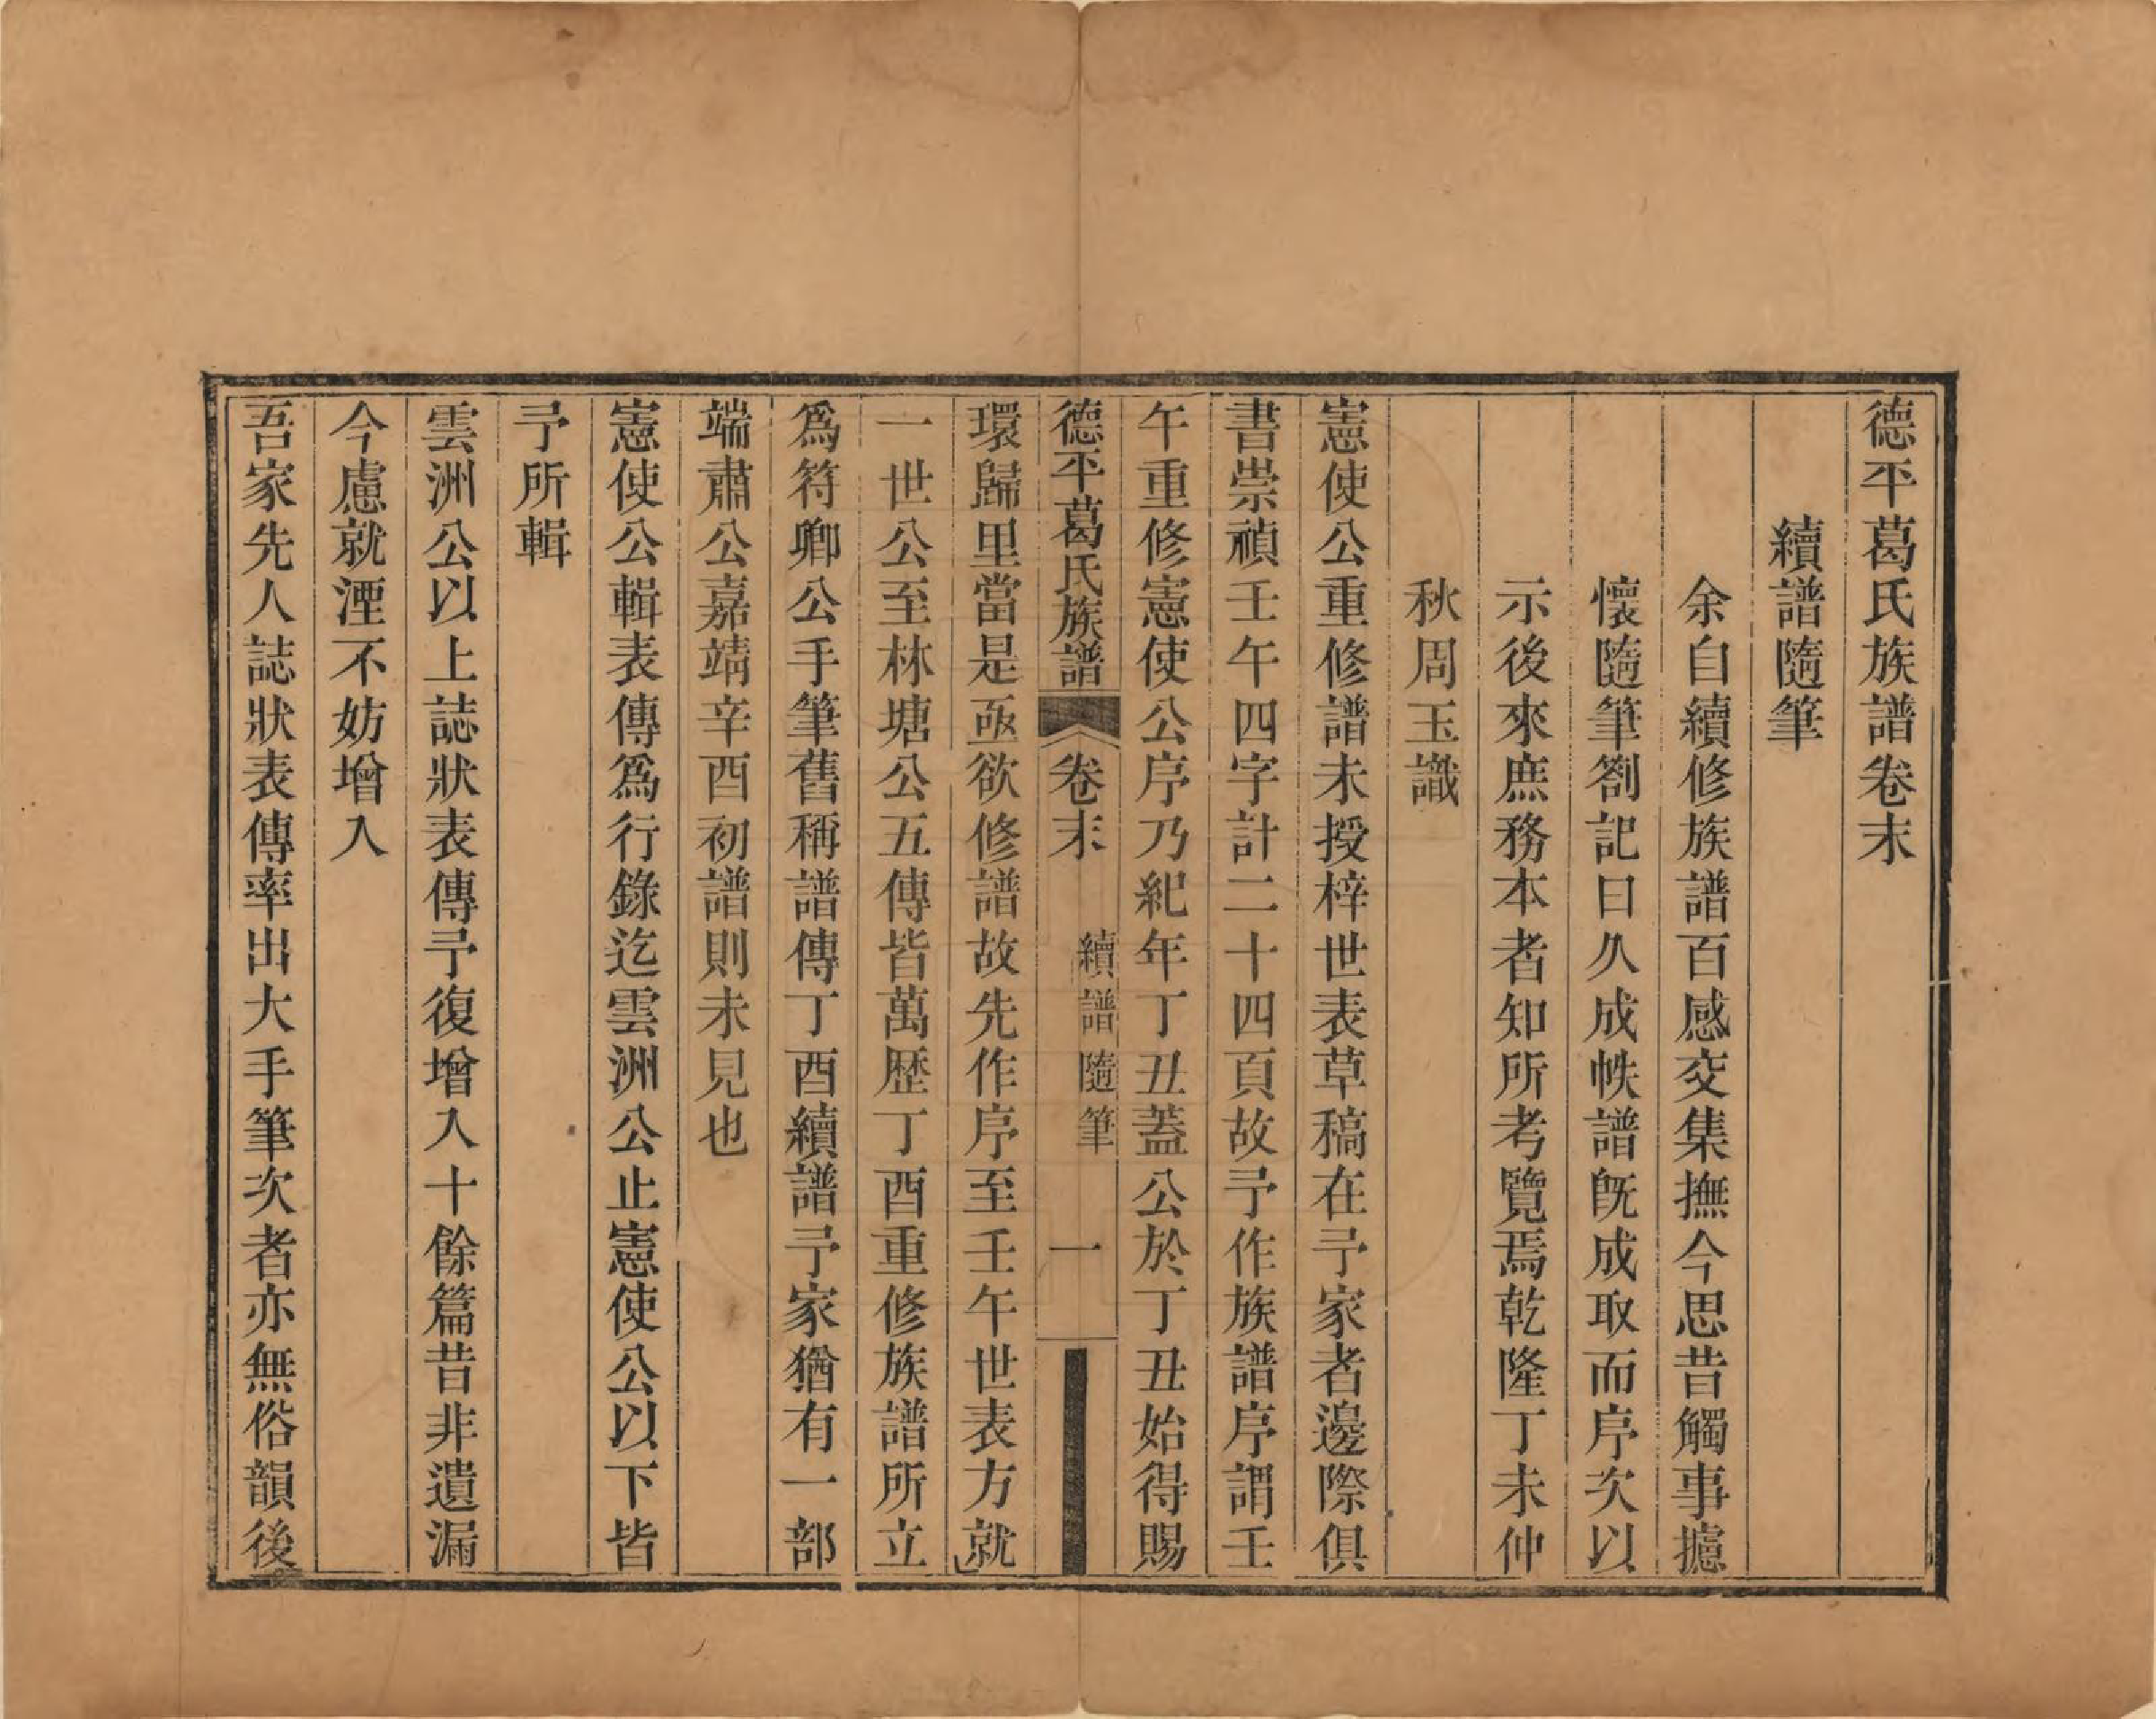 德平葛氏族譜卷末
續譜隨筆
余自續修族譜百感交集撫今思昔觸事攄
懷隨筆劄記日久成帙譜旣成取而序次以
示後來庶務本者知所考覽焉乾隆丁未仲
秋周玉識
憲使公重修譜未授梓世表草稿在予家者邊際俱
書崇禎壬午四字計二十四頁故予作族譜序謂壬
午重修憲使公序乃紀年丁丑蓋公於丁丑始得賜
德平葛氏族譜 卷末 續譜隨筆 一
環歸里當是亟欲修譜故先作序至壬午世表方就
一世公至林塘公五傳皆萬歷丁酉重修族譜所立
爲符卿公手筆舊稱譜傳丁酉續譜予家猶有一部
端肅公嘉靖辛酉初譜則未見也
憲使公輯表傳爲行錄迄雲洲公止憲使公以下皆
予所輯
雲洲公以上誌狀表傳予復增入十餘篇昔非遺漏
今慮就湮不妨增入
吾家先人誌狀表傳率出大手筆次者亦無俗韻後